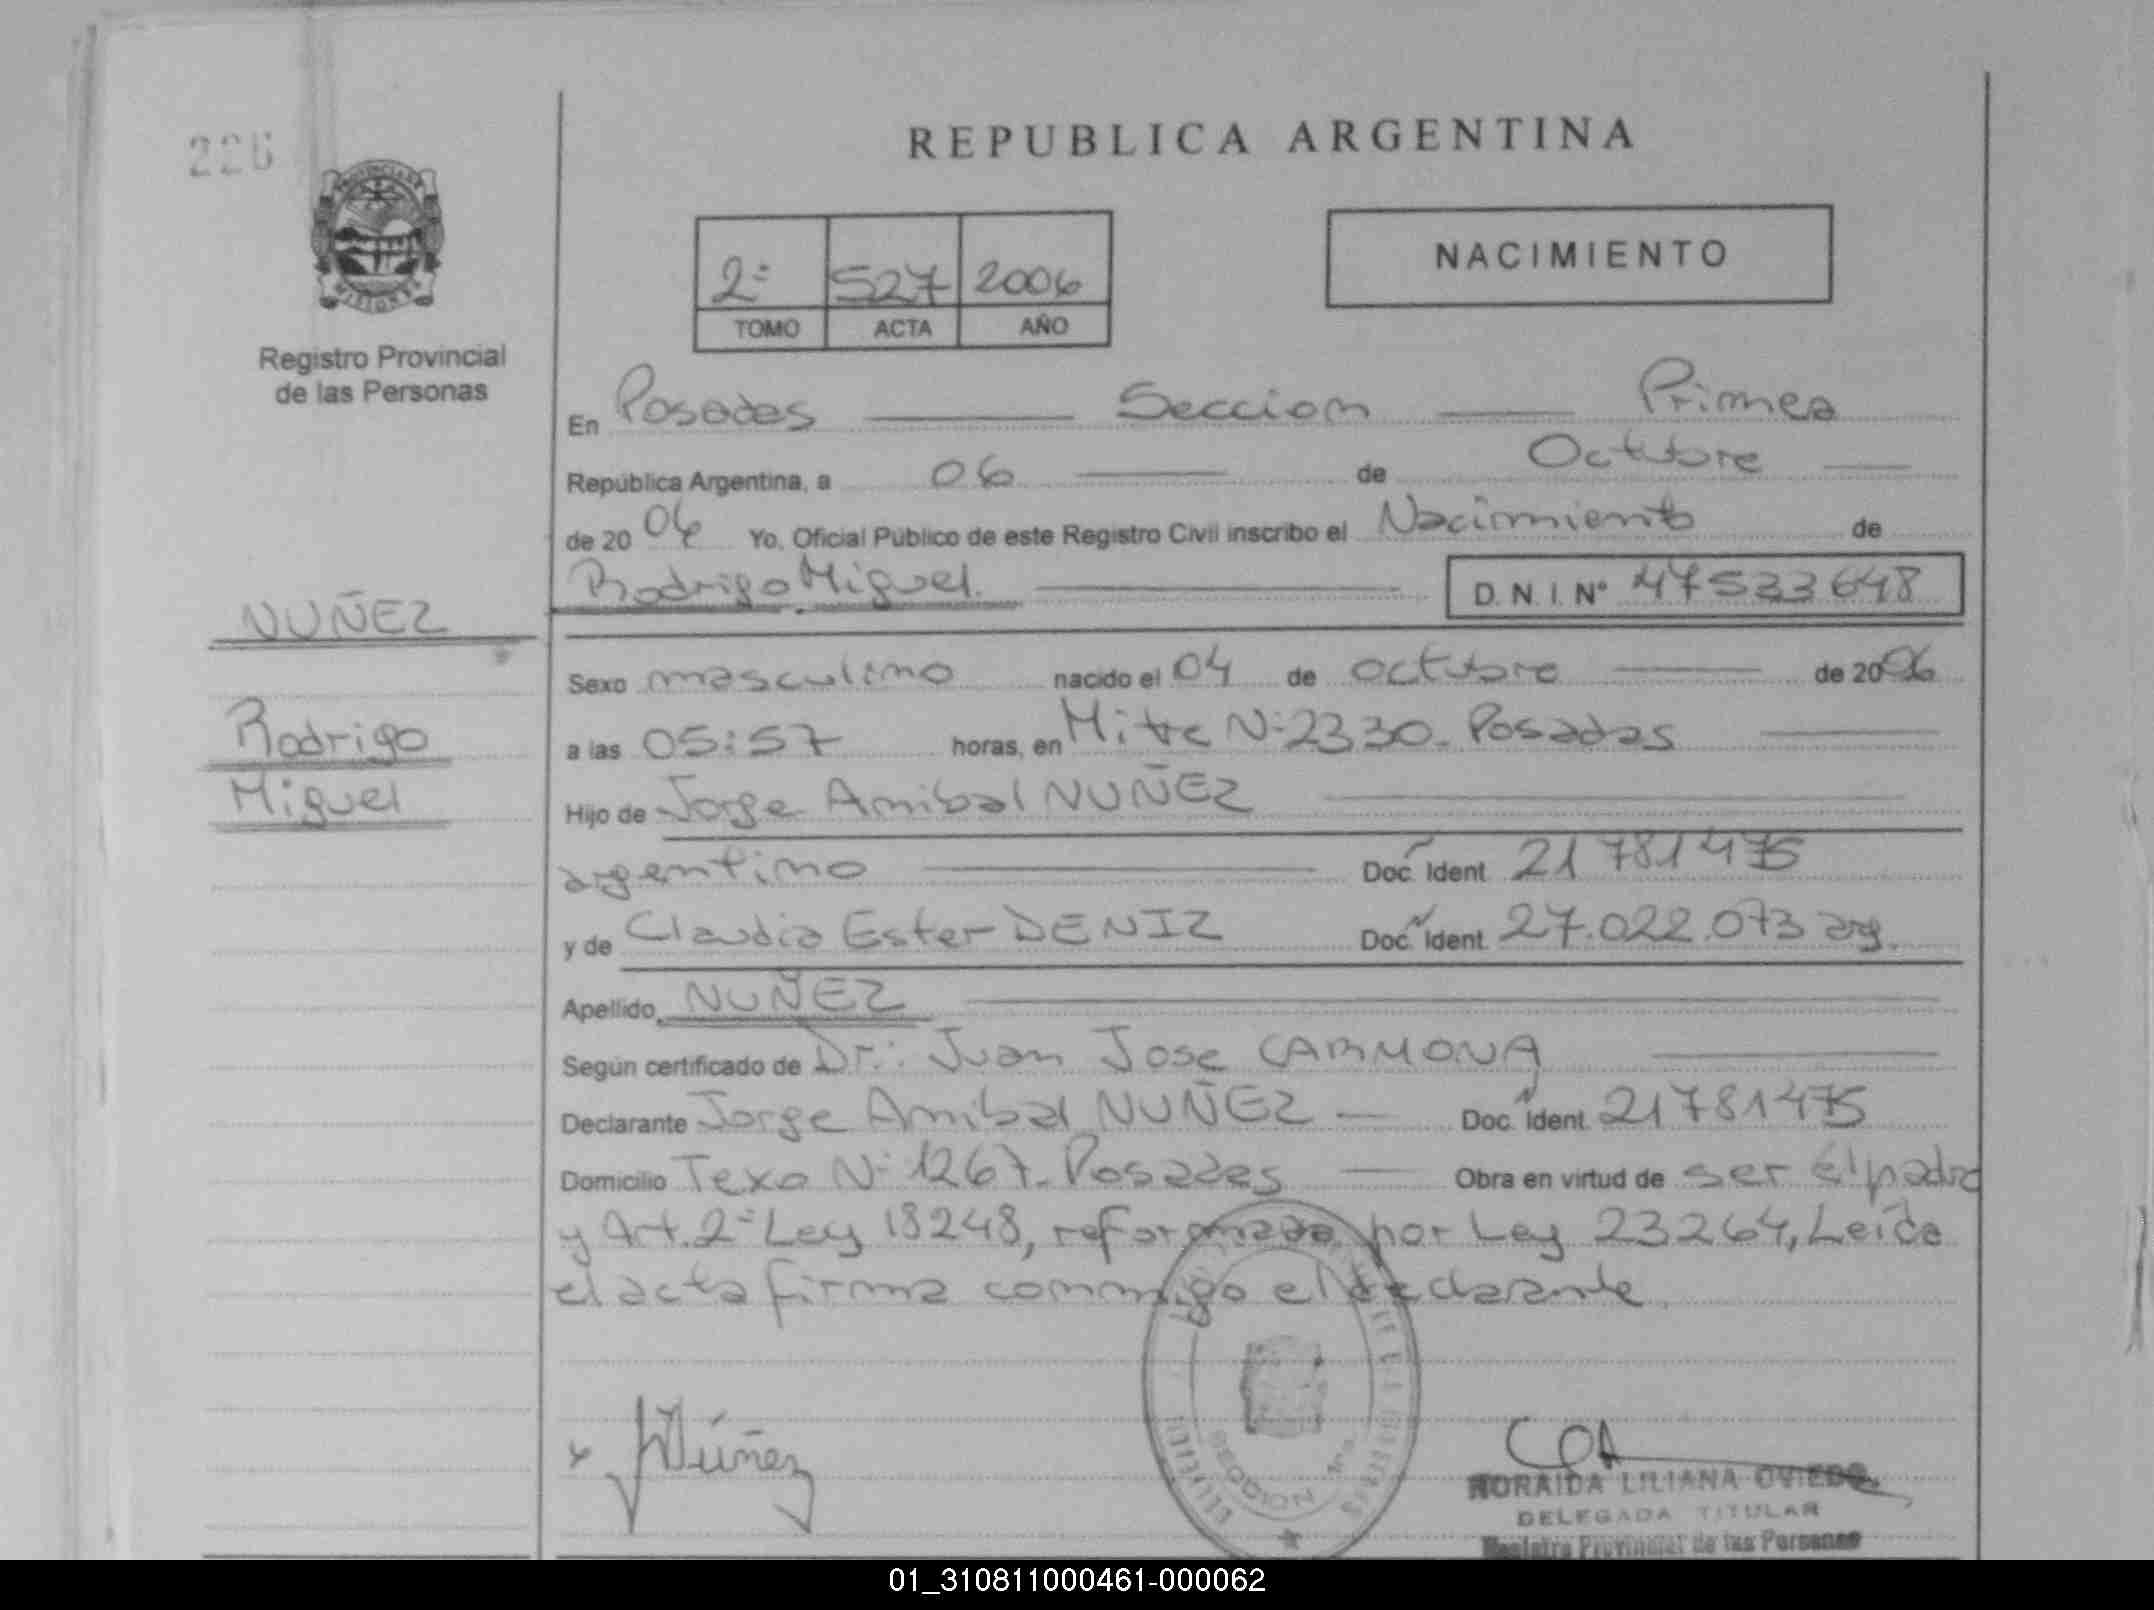 226
PROVINCIA DE
MISIONES
Registro Provincial
de las Personas
NUÑEZ
Rodrigo
Miguel
REPUBLICA ARGENTINA
2º 527 2006
TOMO ACTA AÑO
NACIMIENTO
En Posadas Seccion Primera
República Argentina, a 06 de Octubre
de 2006 Yo, Oficial Público de este Registro Civil inscribo el Nacimiento de
Rodrigo Miguel. D. N. I. Nº 47533648
Sexo masculino nacido el 04 de octubre de 2006
a las 05:57 horas, en Mitre Nº 2330. Posadas
Hijo de Jorge Anibal NUÑEZ
argentino Doc. Ident. 21781475
y de Claudia Ester DENIZ Doc. Ident. 27.022.073 arg.
Apellido NUÑEZ
Según certificado de Dr.: Juan Jose CARMONA
Declarante Jorge Anibal NUÑEZ Doc. Ident. 21781475
Domicilio Texo Nº 1267. Posadas Obra en virtud de ser el padre
y Art. 2º Ley 18248, reformada por Ley 23264, Leida
el acta firma conmigo el declarante.
x JNúñez
SECCION 1ra
NORAIDA LILIANA OVIEDO
DELEGADA TITULAR
Registro Provincial de las Personas
01_310811000461-000062